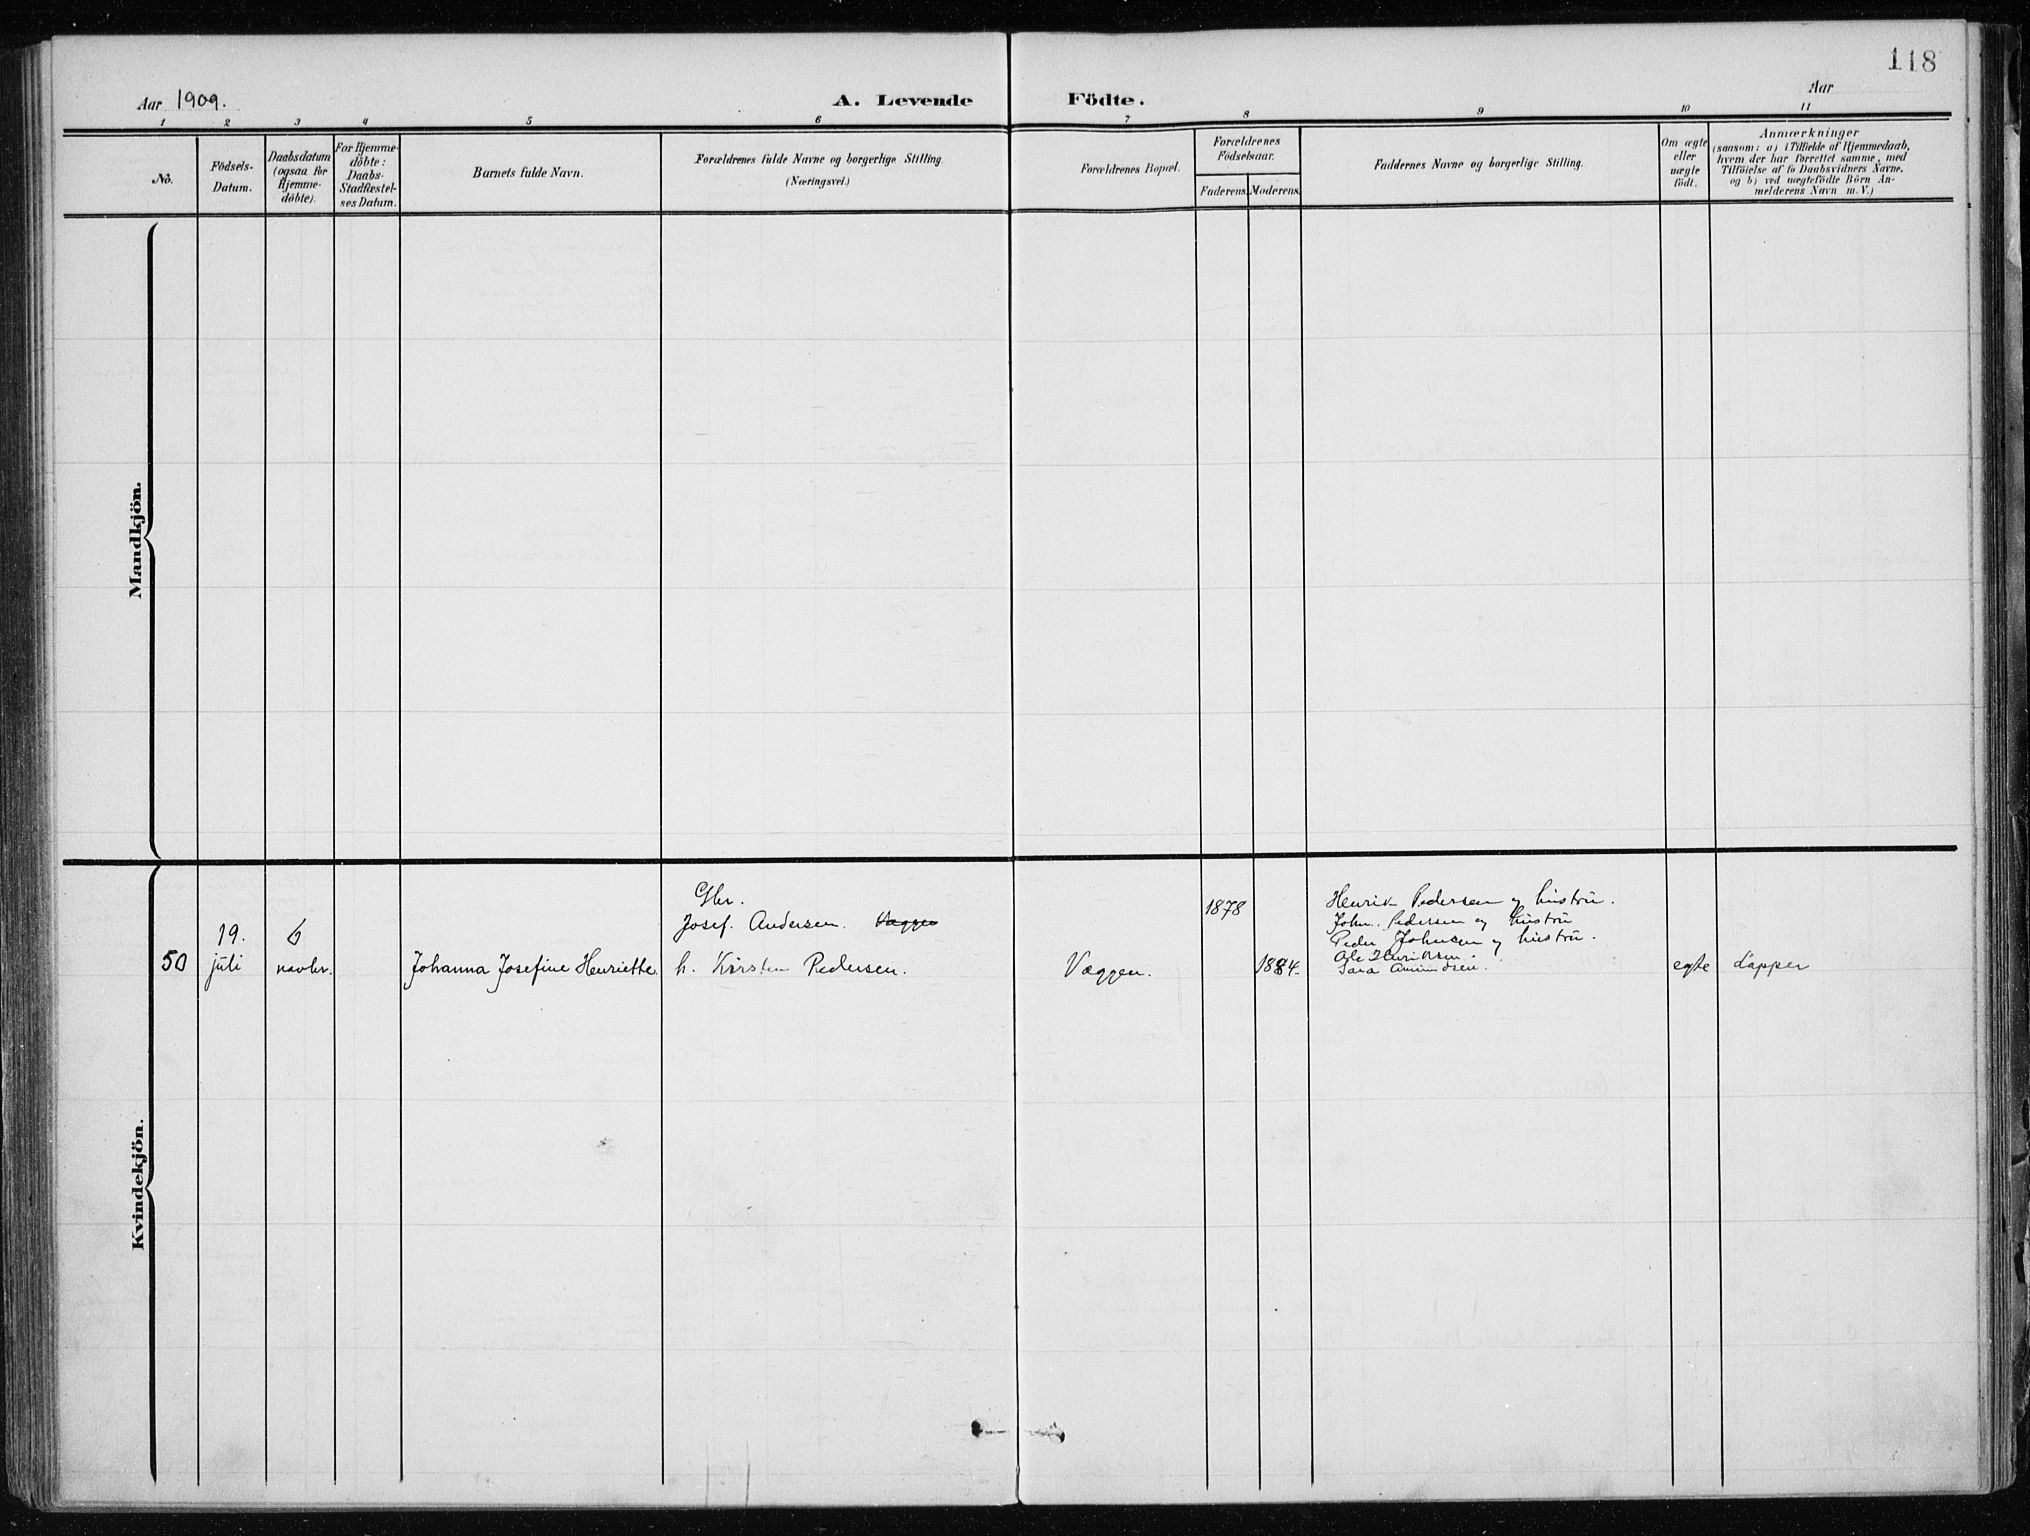 118
Aar 1909.
A. Levende Födte.
Aar
1 2 3 4 5 6 7 8 9 10 11
No.
Födsels-
Datum.
Daabsdatum
(ogsaa for
Hjemme-
döbte).
For Hjemme-
döbte:
Daabs-
Stadfæstel-
ses Datum.
Barnets fulde Navn.
Forældrenes fulde Navne og borgerlige Stilling.
(Næringsvei.)
Forældrenes Bopæl.
Forældrenes
Födselsaar.
Faderens. Moderens.
Faddernes Navne og borgerlige Stilling.
Om ægte
eller
uægte
födt.
Anmærkninger
(saasom: a) i Tilfælde af Hjemmedaab,
hvem der har forrettet samme, med
Tilföielse af to Daabsvidners Navne.
og b) ved uægtefödte Börn An-
melderens Navn m. V.)
Mandkjön.
Kvindekjön.
50
19.
juli
6
novbr.
Johanna Josefine Henriette
Gbr.
Josef. Andersen. Væggen
h. Kirsten Pedersen.
Væggen.
1878
1884.
Henrik Pedersen og hustru.
John. Pedersen og hustru
Peder Johnsen og hustru.
Ole Henriksen.
Sara Amundsen.
egte
Lapper